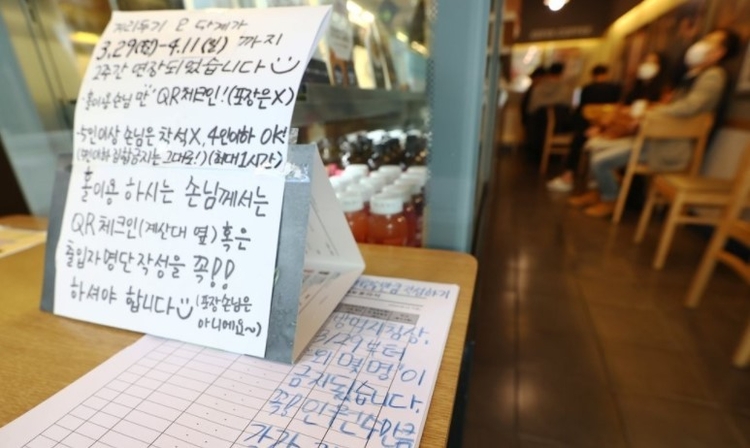 거리두기 2 단계가
3.29(월)-4.11(일) 까지
2주간 연장되었습니다
홀이용손님 만 QR체크인!(포장은X)
-5인이상 손님은 착석X, 4인이하 OK!
(5인이하 집합금지는 그대로!)(최대1시간)
홀이용 하시는 손님께서는
QR체크인(계산대 옆)혹은
출입자명단작성을 꼭!!
하셔야 합니다 (포장손님은
아니에요~)
3/29부터
"외 몇명"이
금지됩니다.
꼭! 인원수만큼